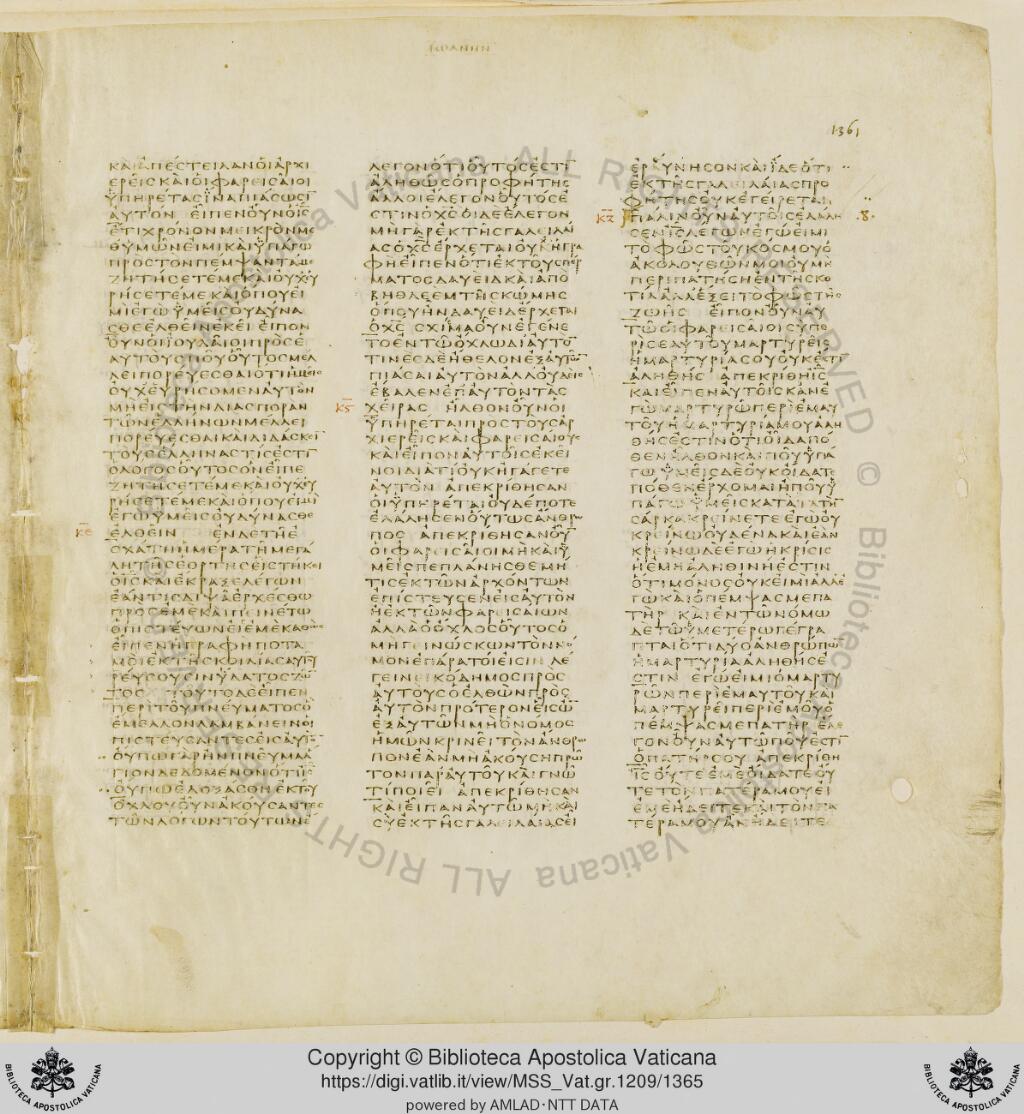 ΙΩΑΝΗΝ
1361
ΚΑΙ ΑΠΕΣΤΕΙΛΑΝ ΟΙ ΑΡΧΙ
ΕΡΕΙΣ ΚΑΙ ΟΙ ΦΑΡΕΙΣΑΙΟΙ
ΥΠΗΡΕΤΑΣ ΙΝΑ ΠΙΑΣΩΣΙ
ΑΥΤΟΝ ΕΙΠΕΝ ΟΥΝ Ο ΙΣ
ΕΤΙ ΧΡΟΝΟΝ ΜΕΙΚΡΟΝ ΜΕ
ΘΥΜΩΝ ΕΙΜΙ ΚΑΙ ΥΠΑΓΩ
ΠΡΟΣ ΤΟΝ ΠΕΜΨΑΝΤΑ ΜΕ
ΖΗΤΗΣΕΤΕ ΜΕ ΚΑΙ ΟΥΧ ΕΥ
ΡΗΣΕΤΕ ΜΕ ΚΑΙ ΟΠΟΥ ΕΙ
ΜΙ ΕΓΩ ΥΜΕΙΣ ΟΥ ΔΥΝΑ
ΣΘΕ ΕΛΘΕΙΝ ΕΚΕΙ ΕΙΠΟΝ
ΟΥΝ ΟΙ ΙΟΥΔΑΙΟΙ ΠΡΟΣ Ε
ΑΥΤΟΥΣ ΠΟΥ ΟΥΤΟΣ ΜΕΛ
ΛΕΙ ΠΟΡΕΥΕΣΘΑΙ ΟΤΙ ΗΜΕΙΣ
ΟΥΧ ΕΥΡΗΣΟΜΕΝ ΑΥΤΟΝ
ΜΗ ΕΙΣ ΤΗΝ ΔΙΑΣΠΟΡΑΝ
ΤΩΝ ΕΛΛΗΝΩΝ ΜΕΛΛΕΙ
ΠΟΡΕΥΕΣΘΑΙ ΚΑΙ ΔΙΔΑΣΚΕΙ
ΤΟΥΣ ΕΛΛΗΝΑΣ ΤΙΣ ΕΣΤΙ
Ο ΛΟΓΟΣ ΟΥΤΟΣ ΟΝ ΕΙΠΕ
ΖΗΤΗΣΕΤΕ ΜΕ ΚΑΙ ΟΥΧ ΕΥ
ΡΗΣΕΤΕ ΜΕ ΚΑΙ ΟΠΟΥ ΕΙΜΙ
ΕΓΩ ΥΜΕΙΣ ΟΥ ΔΥΝΑΣΘΕ
ΚΕ ΕΛΘΕΙΝ ΕΝ ΔΕ ΤΗ Ε
ΣΧΑΤΗ ΗΜΕΡΑ ΤΗ ΜΕΓΑ
ΛΗ ΤΗΣ ΕΟΡΤΗΣ ΕΙΣΤΗΚΕΙ
Ο ΙΣ ΚΑΙ ΕΚΡΑΞΕ ΛΕΓΩΝ
ΕΑΝ ΤΙΣ ΔΙΨΑ ΕΡΧΕΣΘΩ
ΠΡΟΣ ΕΜΕ ΚΑΙ ΠΙΝΕΤΩ
Ο ΠΙΣΤΕΥΩΝ ΕΙΣ ΕΜΕ ΚΑΘΩΣ
ΕΙΠΕΝ Η ΓΡΑΦΗ ΠΟΤΑ
ΜΟΙ ΕΚ ΤΗΣ ΚΟΙΛΙΑΣ ΑΥΤΟΥ
ΡΕΥΣΟΥΣΙΝ ΥΔΑΤΟΣ ΖΩ
ΤΟΣ ΤΟΥΤΟ ΔΕ ΕΙΠΕΝ
ΠΕΡΙ ΤΟΥ ΠΝΕΥΜΑΤΟΣ Ο
ΕΜΕΛΛΟΝ ΛΑΜΒΑΝΕΙΝ ΟΙ
ΠΙΣΤΕΥΣΑΝΤΕΣ ΕΙΣ ΑΥΤΟ
ΟΥΠΩ ΓΑΡ ΗΝ ΠΝΕΥΜΑ Α
ΓΙΟΝ ΔΕΔΟΜΕΝΟΝ ΟΤΙ ΙΣ
ΟΥΠΩ ΕΔΟΞΑΣΘΗ ΕΚ ΤΟΥ
ΟΧΛΟΥ ΟΥΝ ΑΚΟΥΣΑΝΤΕΣ
ΤΩΝ ΛΟΓΩΝ ΤΟΥΤΩΝ Ε
ΛΕΓΟΝ ΟΤΙ ΟΥΤΟΣ ΕΣΤΙ
ΑΛΗΘΩΣ Ο ΠΡΟΦΗΤΗΣ
ΑΛΛΟΙ ΕΛΕΓΟΝ ΟΥΤΟΣ Ε
ΣΤΙΝ Ο ΧΣ ΟΙ ΔΕ ΕΛΕΓΟΝ
ΜΗ ΓΑΡ ΕΚ ΤΗΣ ΓΑΛΕΙΛΑΙ
ΑΣ Ο ΧΣ ΕΡΧΕΤΑΙ ΟΥΧ Η ΓΡΑ
ΦΗ ΕΙΠΕΝ ΟΤΙ ΕΚ ΤΟΥ ΣΠΕΡ
ΜΑΤΟΣ ΔΑΥΕΙΔ ΚΑΙ ΑΠΟ
ΒΗΘΛΕΕΜ ΤΗΣ ΚΩΜΗΣ
ΟΠΟΥ ΗΝ ΔΑΥΕΙΔ ΕΡΧΕΤΑΙ
Ο ΧΣ ΣΧΙΣΜΑ ΟΥΝ ΕΓΕΝΕ
ΤΟ ΕΝ ΤΩ ΟΧΛΩ ΔΙ ΑΥΤΟ
ΤΙΝΕΣ ΔΕ ΗΘΕΛΟΝ ΕΞ ΑΥΤΩ
ΠΙΑΣΑΙ ΑΥΤΟΝ ΑΛΛ ΟΥΔΕΙΣ
ΕΒΑΛΕΝ ΕΠ ΑΥΤΟΝ ΤΑΣ
ΚϚ ΧΕΙΡΑΣ ΗΛΘΟΝ ΟΥΝ ΟΙ
ΥΠΗΡΕΤΑΙ ΠΡΟΣ ΤΟΥΣ ΑΡ
ΧΙΕΡΕΙΣ ΚΑΙ ΦΑΡΕΙΣΑΙΟΥΣ
ΚΑΙ ΕΙΠΟΝ ΑΥΤΟΙΣ ΕΚΕΙ
ΝΟΙ ΔΙΑ ΤΙ ΟΥΚ ΗΓΑΓΕΤΕ
ΑΥΤΟΝ ΑΠΕΚΡΙΘΗΣΑΝ
ΟΙ ΥΠΗΡΕΤΑΙ ΟΥΔΕΠΟΤΕ
ΕΛΑΛΗΣΕΝ ΟΥΤΩΣ ΑΝΘΡΩ
ΠΟΣ ΑΠΕΚΡΙΘΗΣΑΝ ΟΥ
ΟΙ ΦΑΡΕΙΣΑΙΟΙ ΜΗ ΚΑΙ Υ
ΜΕΙΣ ΠΕΠΛΑΝΗΣΘΕ ΜΗ
ΤΙΣ ΕΚ ΤΩΝ ΑΡΧΟΝΤΩΝ
ΕΠΙΣΤΕΥΣΕΝ ΕΙΣ ΑΥΤΟΝ
Η ΕΚ ΤΩΝ ΦΑΡΕΙΣΑΙΩΝ
ΑΛΛΑ Ο ΟΧΛΟΣ ΟΥΤΟΣ Ο
ΜΗ ΓΕΙΝΩΣΚΩΝ ΤΟΝ ΝΟ
ΜΟΝ ΕΠΑΡΑΤΟΙ ΕΙΣΙΝ ΛΕ
ΓΕΙ ΝΕΙΚΟΔΗΜΟΣ ΠΡΟΣ
ΑΥΤΟΥΣ Ο ΕΛΘΩΝ ΠΡΟΣ
ΑΥΤΟΝ ΠΡΟΤΕΡΟΝ ΕΙΣ ΩΝ
ΕΞ ΑΥΤΩΝ ΜΗ Ο ΝΟΜΟΣ
ΗΜΩΝ ΚΡΙΝΕΙ ΤΟΝ ΑΝΘΡΩ
ΠΟΝ ΕΑΝ ΜΗ ΑΚΟΥΣΗ ΠΡΩ
ΤΟΝ ΠΑΡ ΑΥΤΟΥ ΚΑΙ ΓΝΩ
ΤΙ ΠΟΙΕΙ ΑΠΕΚΡΙΘΗΣΑΝ
ΚΑΙ ΕΙΠΑΝ ΑΥΤΩ ΜΗ ΚΑΙ
ΣΥ ΕΚ ΤΗΣ ΓΑΛΕΙΛΑΙΑΣ ΕΙ
ΕΡΑΥΝΗΣΟΝ ΚΑΙ ΙΔΕ ΟΤΙ
ΕΚ ΤΗΣ ΓΑΛΕΙΛΑΙΑΣ ΠΡΟ
ΦΗΤΗΣ ΟΥΚ ΕΓΕΙΡΕΤΑΙ
ΚΖ ΠΑΛΙΝ ΟΥΝ ΑΥΤΟΙΣ ΕΛΑΛΗ 8
ΣΕΝ ΙΣ ΛΕΓΩΝ ΕΓΩ ΕΙΜΙ
ΤΟ ΦΩΣ ΤΟΥ ΚΟΣΜΟΥ Ο
ΑΚΟΛΟΥΘΩΝ ΜΟΙ ΟΥ ΜΗ
ΠΕΡΙΠΑΤΗΣΗ ΕΝ ΤΗ ΣΚΟ
ΤΙΑ ΑΛΛ ΕΞΕΙ ΤΟ ΦΩΣ ΤΗΣ
ΖΩΗΣ ΕΙΠΟΝ ΟΥΝ ΑΥ
ΤΩ ΟΙ ΦΑΡΕΙΣΑΙΟΙ ΣΥ ΠΕ
ΡΙ ΣΕΑΥΤΟΥ ΜΑΡΤΥΡΕΙΣ
Η ΜΑΡΤΥΡΙΑ ΣΟΥ ΟΥΚ ΕΣΤΙ
ΑΛΗΘΗΣ ΑΠΕΚΡΙΘΗ ΙΣ
ΚΑΙ ΕΙΠΕΝ ΑΥΤΟΙΣ ΚΑΝ Ε
ΓΩ ΜΑΡΤΥΡΩ ΠΕΡΙ ΕΜΑΥ
ΤΟΥ Η ΜΑΡΤΥΡΙΑ ΜΟΥ ΑΛΗ
ΘΗΣ ΕΣΤΙΝ ΟΤΙ ΟΙΔΑ ΠΟ
ΘΕΝ ΗΛΘΟΝ ΚΑΙ ΠΟΥ ΥΠΑ
ΓΩ ΥΜΕΙΣ ΔΕ ΟΥΚ ΟΙΔΑΤΕ
ΠΟΘΕΝ ΕΡΧΟΜΑΙ Η ΠΟΥ Υ
ΠΑΓΩ ΥΜΕΙΣ ΚΑΤΑ ΤΗ
ΣΑΡΚΑ ΚΡΕΙΝΕΤΕ ΕΓΩ ΟΥ
ΚΡΕΙΝΩ ΟΥΔΕΝΑ ΚΑΙ ΕΑΝ
ΚΡΕΙΝΩ ΔΕ ΕΓΩ Η ΚΡΙΣΙΣ
Η ΕΜΗ ΑΛΗΘΙΝΗ ΕΣΤΙΝ
ΟΤΙ ΜΟΝΟΣ ΟΥΚ ΕΙΜΙ ΑΛΛ Ε
ΓΩ ΚΑΙ Ο ΠΕΜΨΑΣ ΜΕ ΠΑ
ΤΗΡ ΚΑΙ ΕΝ ΤΩ ΝΟΜΩ
ΔΕ ΤΩ ΥΜΕΤΕΡΩ ΓΕΓΡΑ
ΠΤΑΙ ΟΤΙ ΔΥΟ ΑΝΘΡΩΠΩ
Η ΜΑΡΤΥΡΙΑ ΑΛΗΘΗΣ Ε
ΣΤΙΝ ΕΓΩ ΕΙΜΙ Ο ΜΑΡΤΥ
ΡΩΝ ΠΕΡΙ ΕΜΑΥΤΟΥ ΚΑΙ
ΜΑΡΤΥΡΕΙ ΠΕΡΙ ΕΜΟΥ Ο
ΠΕΜΨΑΣ ΜΕ ΠΑΤΗΡ ΕΛΕ
ΓΟΝ ΟΥΝ ΑΥΤΩ ΠΟΥ ΕΣΤΙ
Ο ΠΑΤΗΡ ΣΟΥ ΑΠΕΚΡΙΘΗ
ΙΣ ΟΥΤΕ ΕΜΕ ΟΙΔΑΤΕ ΟΥ
ΤΕ ΤΟΝ ΠΑΤΕΡΑ ΜΟΥ ΕΙ
ΕΜΕ ΗΔΕΙΤΕ ΚΑΙ ΤΟΝ ΠΑ
ΤΕΡΑ ΜΟΥ ΑΝ ΗΔΕΙΤΕ
Copyright © Biblioteca Apostolica Vaticana
https://digi.vatlib.it/view/MSS_Vat.gr.1209/1365
powered by AMLAD·NTT DATA
BIBLIOTECA APOSTOLICA VATICANA
BIBLIOTECA APOSTOLICA VATICANA